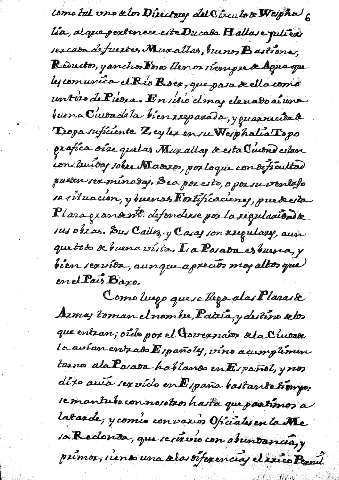 como tal uno de los Directores del Circulo de Wespha 6
lia, al que pertenece este Ducado Hallase pulida
cercada de fuertes Murallas, buenos Bastiones,
Reductos, y anchos Fosos llenos siempre de Agua que
les comunica el Rio Roer, que pasa de ella como
un tiro de Piedra. En sitio el mas elevado ai una
buena Ciudadela bien reparada, y guarnecida de
Tropa suficiente Zeyler en su Wesphalia Topo
grafica dice que las Murallas de esta Ciudad estan
construidas sobre Maderos, por lo que con dificultad
pueden ser minadas. Sea por esto, o por su ventajosa
situación, y buenas Fortificaciones, puede esta
Plaza grandemte. defenderse por la regularidad de
sus obras. Sus Calles, y Casas son regulares, aun
que todo de buena vista. La Posada es buena, y
bien servida, aunque a precios mas altos que
en el Pais Baxo.
Como luego que se llega a las Plazas de
Armas toman el nombre, Patria, y destino de los
que entran; oido por el Governador de la Ciudade
la avian entrado Españoles, vino a cumplimen
tarnos a la Posada hablando en Español, y nos
dixo avia servido en España bastante tiempo;
se mantubo con nosotros hasta que partimos a
la tarde, y comio con varios Oficiales en la Me
sa Redonda, que se sirvio con abundancia, y
primor, siendo una de las diferencias el rico Pernil